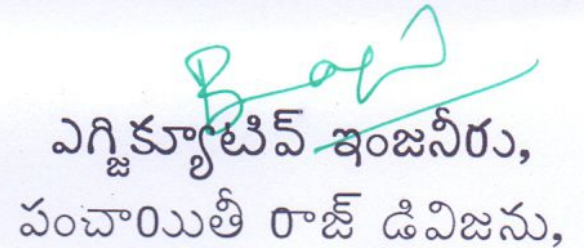 ఎగ్జిక్యూటివ్ ఇంజనీరు,
పంచాయితీ రాజ్ డివిజను,